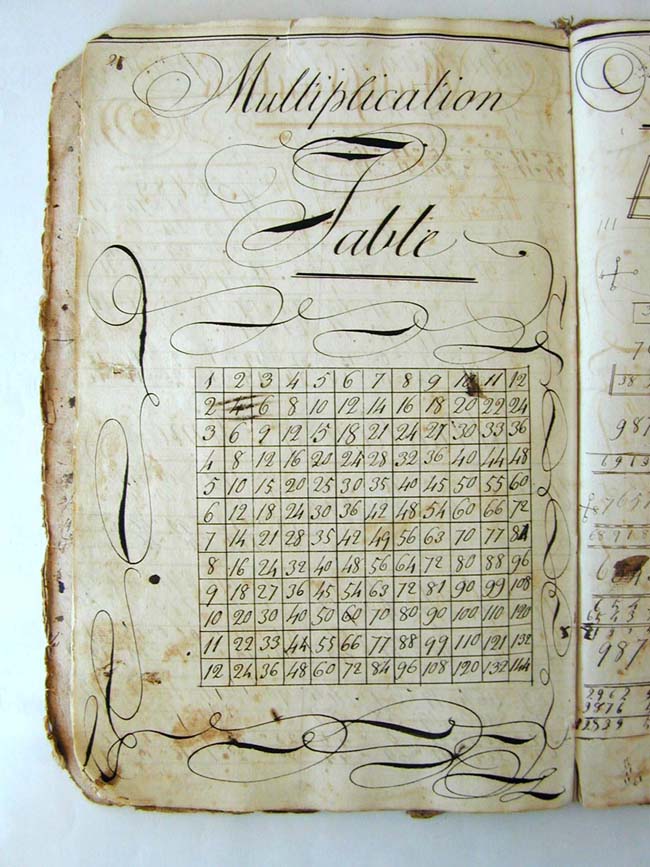 21
Multiplication
Table
1 2 3 4 5 6 7 8 9 10 11 12
2 4 6 8 10 12 14 16 18 20 22 24
3 6 9 12 15 18 21 24 27 30 33 36
4 8 12 16 20 24 28 32 36 40 44 48
5 10 15 20 25 30 35 40 45 50 55 60
6 12 18 24 30 36 42 48 54 60 66 72
7 14 21 28 35 42 49 56 63 70 77 84
8 16 24 32 40 48 56 64 72 80 88 96
9 18 27 36 45 54 63 72 81 90 99 108
10 20 30 40 50 60 70 80 90 100 110 120
11 22 33 44 55 66 77 88 99 110 121 132
12 24 36 48 60 72 84 96 108 120 132 144
987